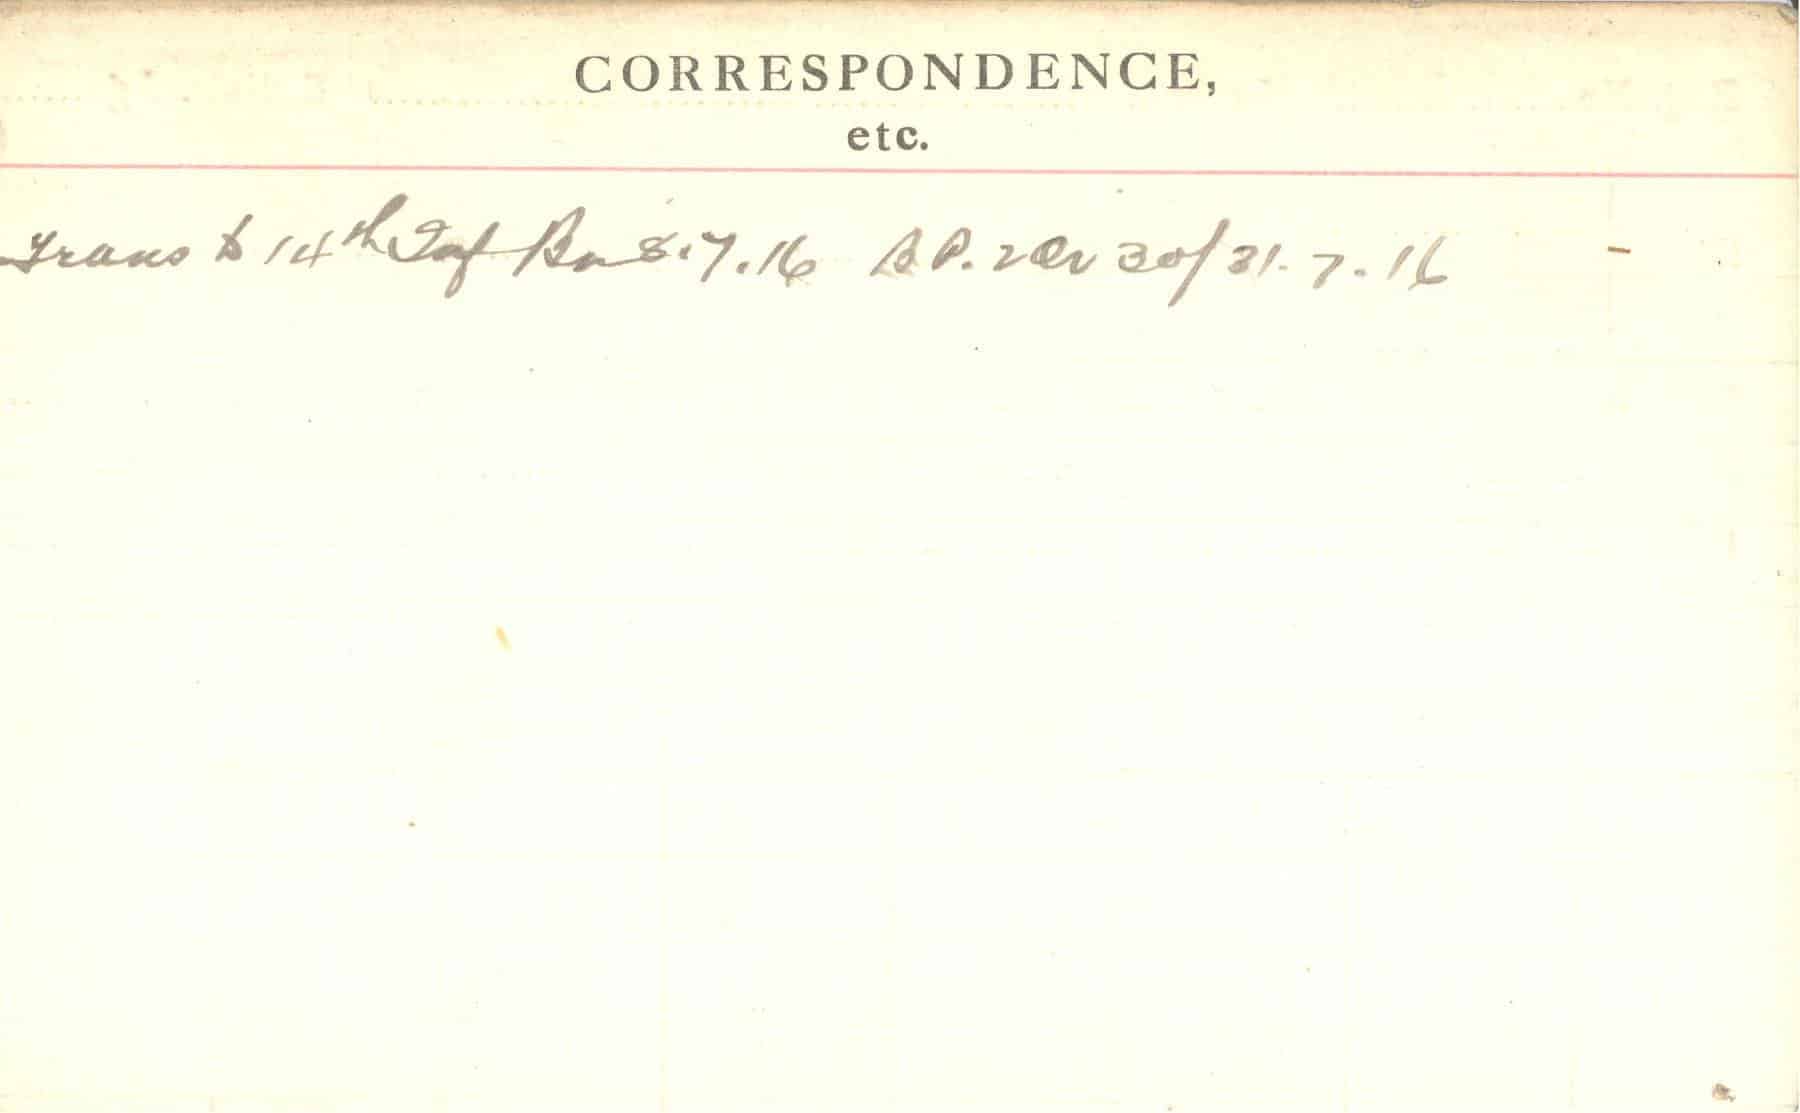 CORRESPONDENCE,
etc.
Trans to 14th Inf Bn 8.7.16 30/31.7.16